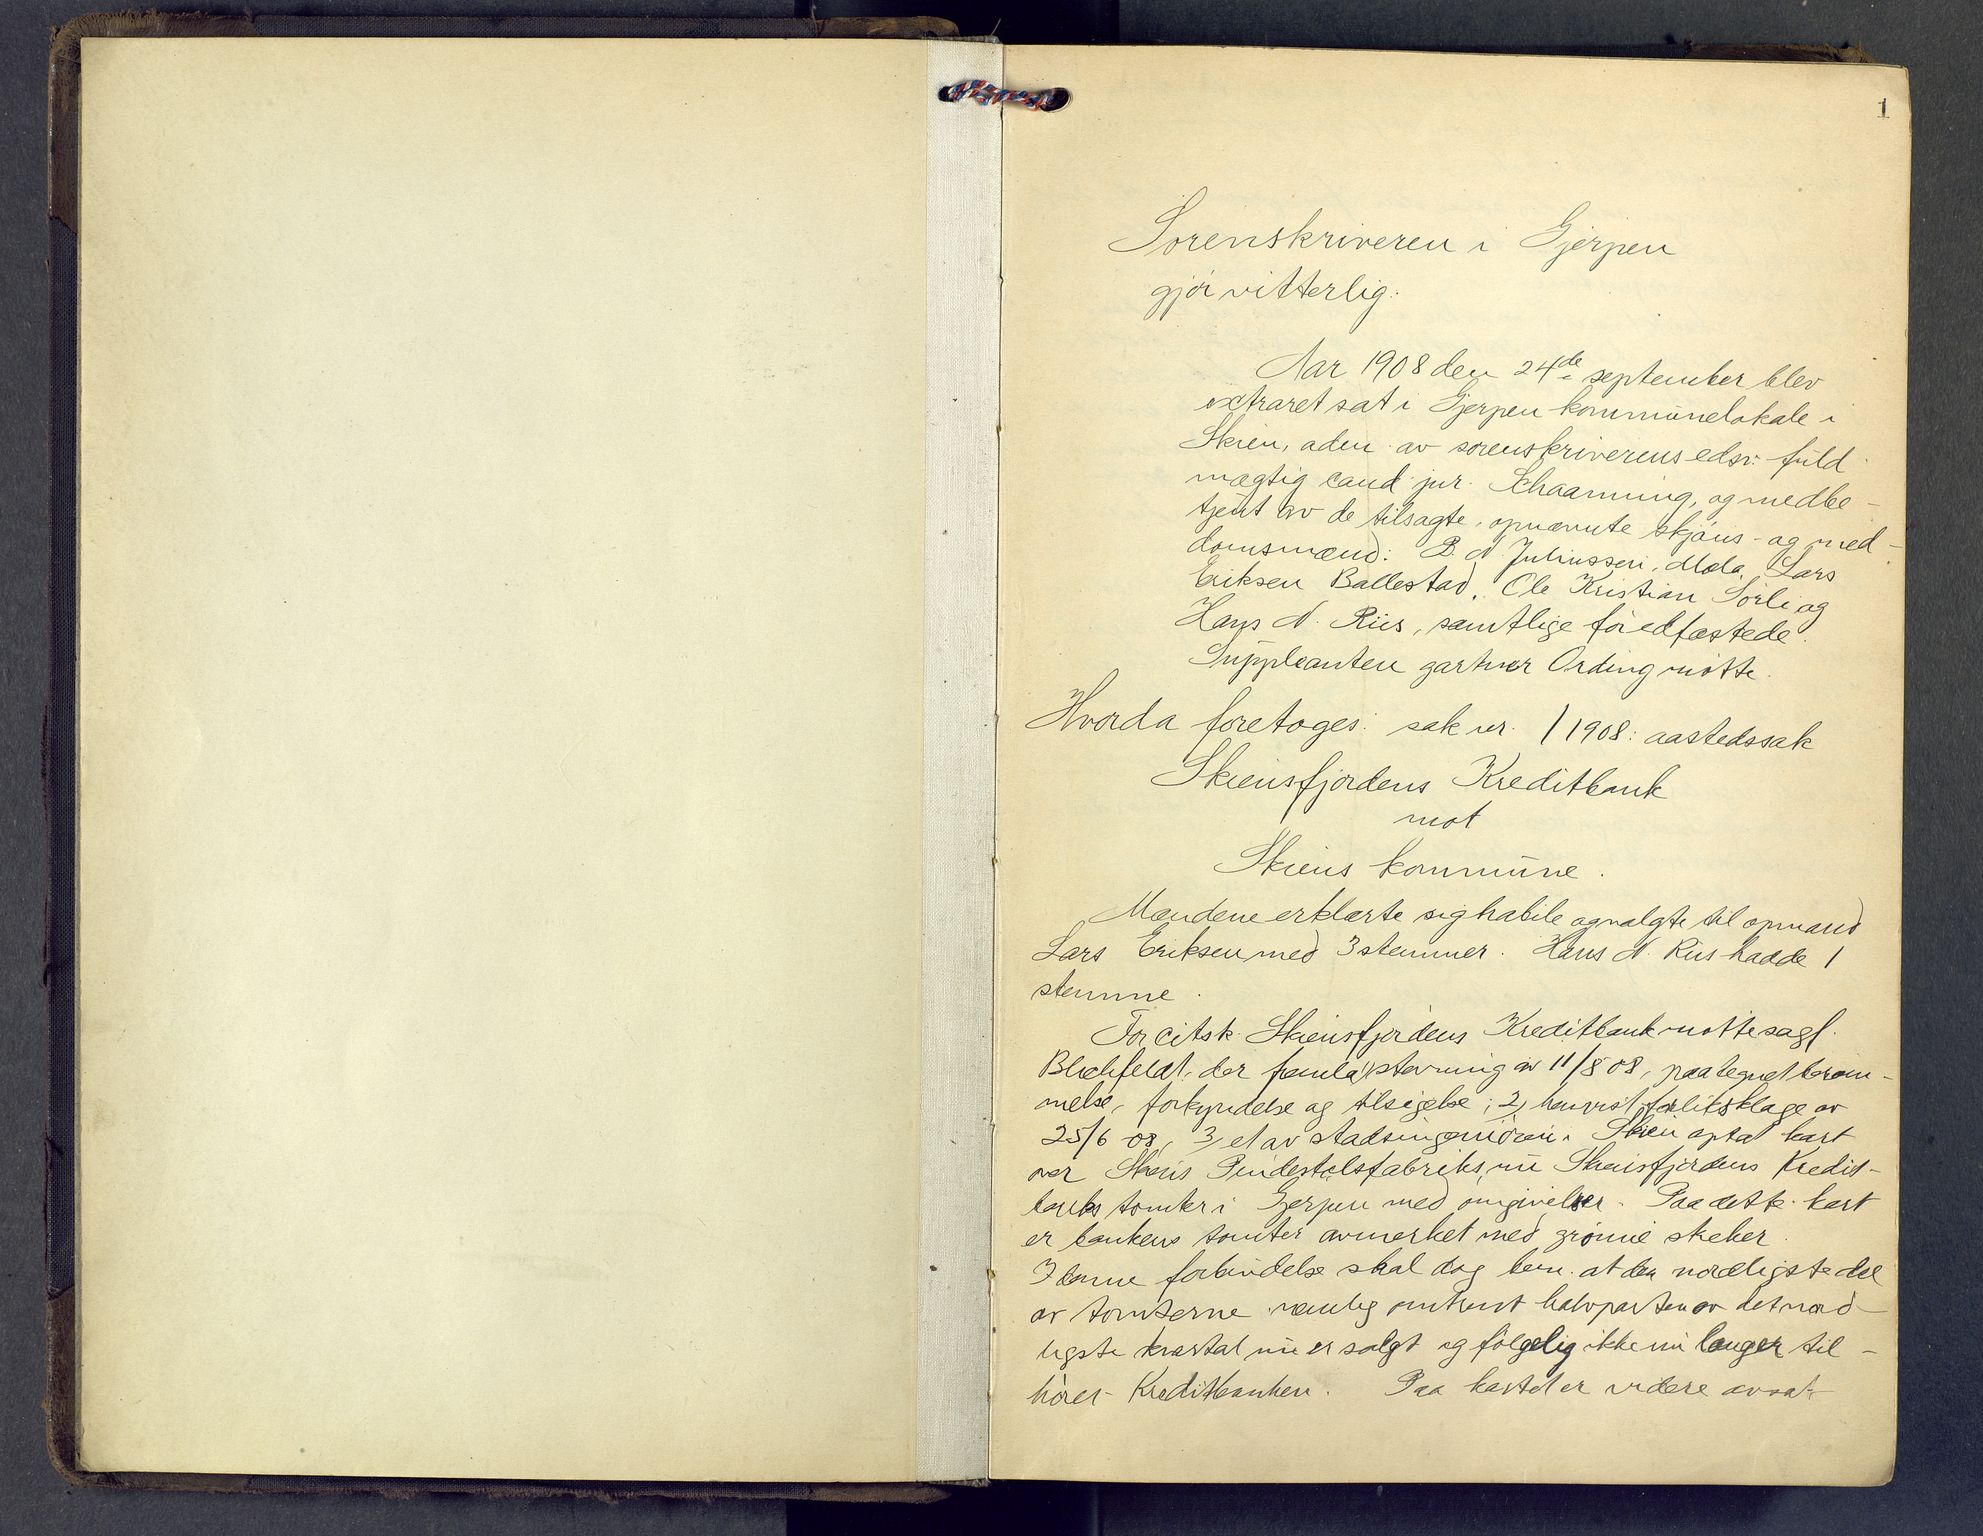 1
Sorenskriveren i Gjerpen
gjör vitterlig:
Aar 1908 den 24de september blev
extraret sat i Gjerpen kommunelokale i
Skien, aden av sorenskriverens edsv. fuld-
mægtig cand. jur. Schaanning, og medbe-
tjent av de tilsagte, opnævnte skjöns- og med-
domsmænd: P. N. Juliussen, Mæla, Lars
Eriksen Ballestad, Ole Kristian Sörli og
Hans N. Riis, samtlige för edfæstede.
Suppleanten gartner Ording mötte.
Hvorda foretoges: sak nr. 1/1908: aastedssak
Skiensfjordens Kreditbank
mot
Skiens kommune.
Mændene erklærte sig habile og valgte til opmand
Lars Eriksen med 3 stemmer. Hans N. Riis hadde 1
stemme.
For citsk. Skiensfjordens Kreditbank mötte sagf.
Blechfeldt, der fremla 1) stevning av 11/8 08, paategnet beram-
melse, forkyndelse og tilsigelse; 2) henvist forliksklage av
25/6 08, 3) et av stadsingeniören i Skien optat kart
over Skiens Pindestolsfabriks, nu Skiensfjordens Kredit-
banks tomter i Gjerpen med omgivelser. Paa dette kart
er bankens tomter avmerket med grönne streker.
I denne forbindelse skal dog bem. at den nordligste del
av tomterne nemlig omtrent halvparten av det nord-
ligste kvartal nu er solgt og fölgelig ikke nu længer til-
hörer Kreditbanken. Paa kartet er videre avsat